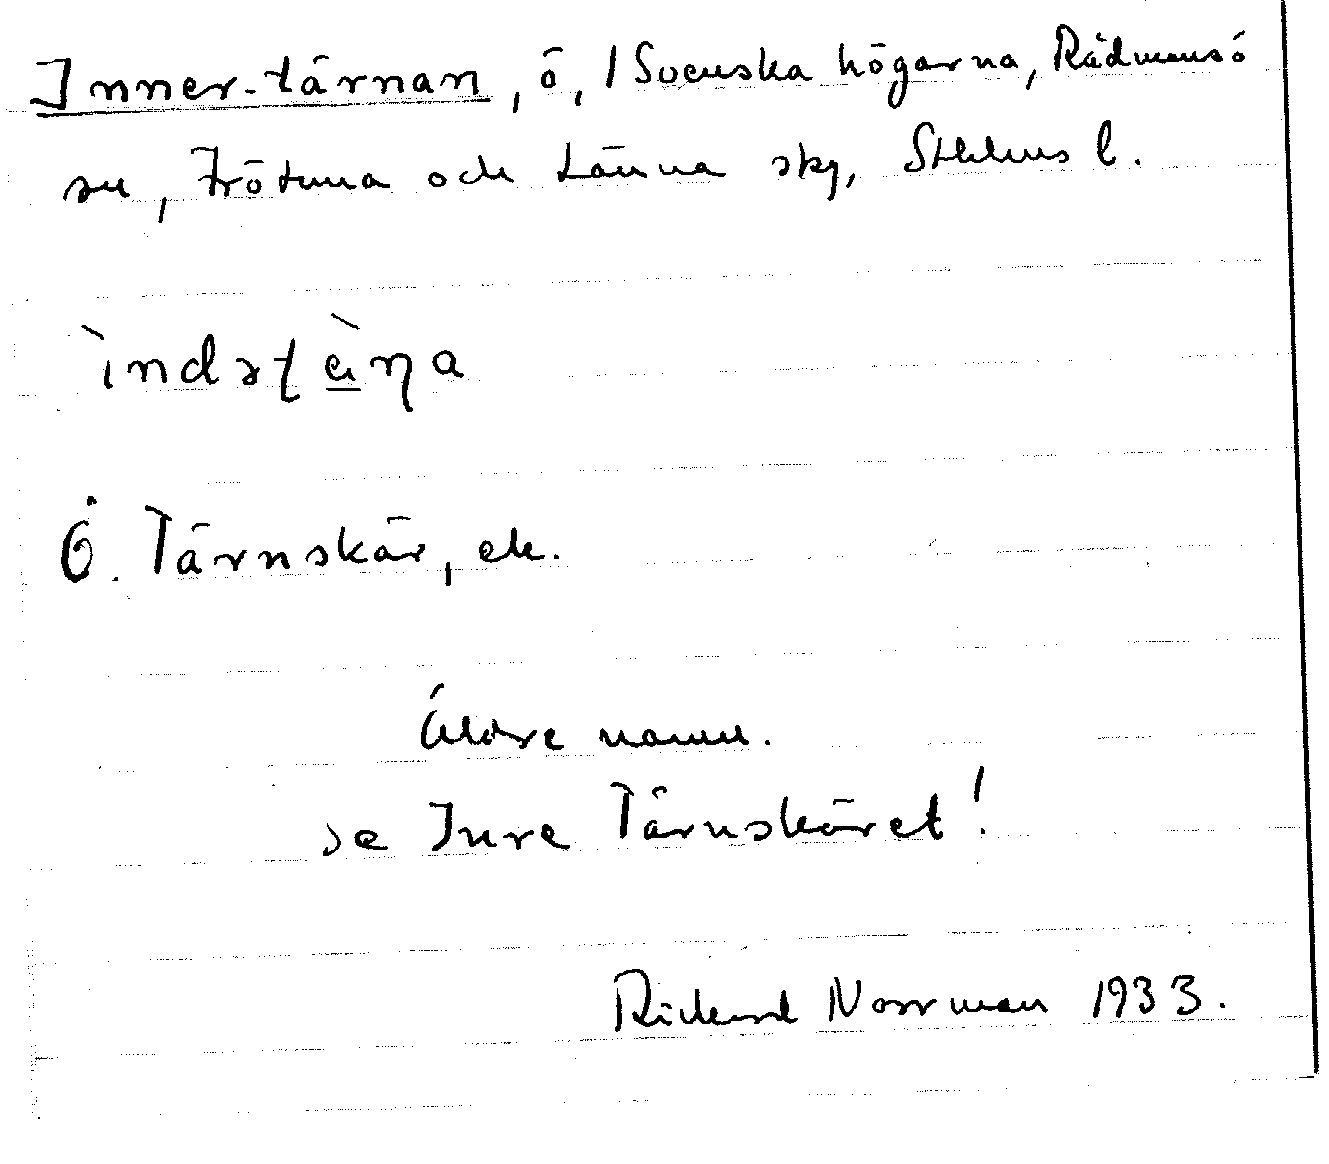 Inner-tärnan, ö, i Svenska högarna, Rådmansö
sn, Frötuna och Länna skg, Sthlms l.
ìndətæ̀ṇa
Ö. Tärnskär, ek.
Äldre namn.
se Inre Tärnskäret!
Rickard Norrman 1933.